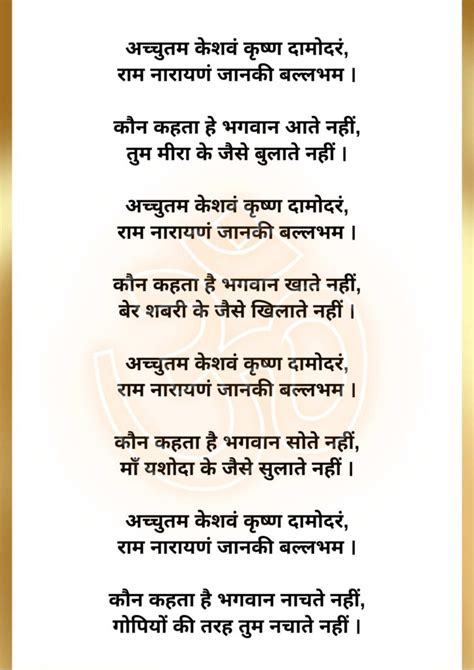 अच्चुतम केशवं कृष्ण दामोदरं,
राम नारायणं जानकी बल्लभम ।
कौन कहता हे भगवान आते नहीं,
तुम मीरा के जैसे बुलाते नहीं ।
अच्चुतम केशवं कृष्ण दामोदरं,
राम नारायणं जानकी बल्लभम ।
कौन कहता है भगवान खाते नहीं,
बेर शबरी के जैसे खिलाते नहीं ।
अच्चुतम केशवं कृष्ण दामोदरं,
राम नारायणं जानकी बल्लभम ।
कौन कहता है भगवान सोते नहीं,
माँ यशोदा के जैसे सुलाते नहीं ।
अच्चुतम केशवं कृष्ण दामोदरं,
राम नारायणं जानकी बल्लभम ।
कौन कहता है भगवान नाचते नहीं,
गोपियों की तरह तुम नचाते नहीं ।